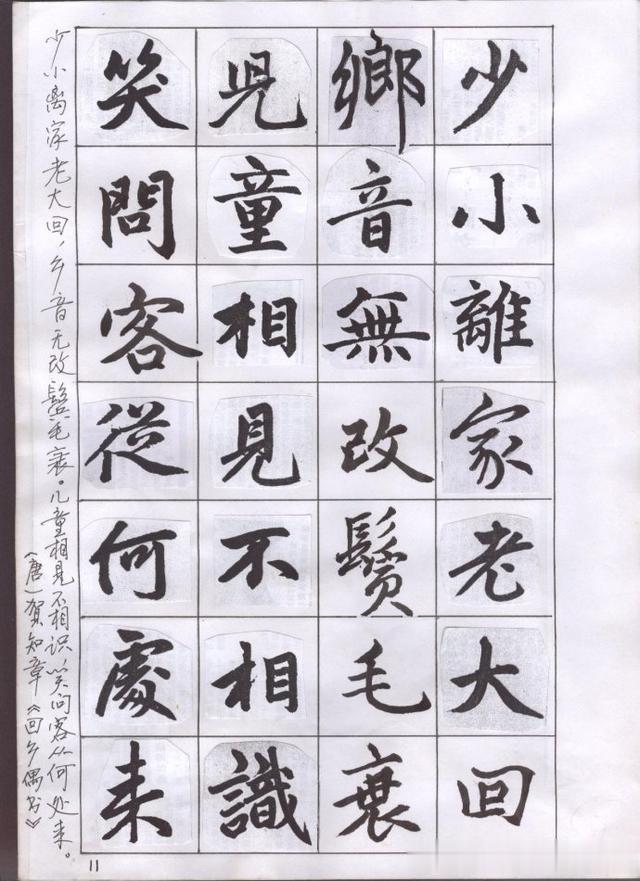 少小離家老大回
鄉音無改鬢毛衰
兒童相見不相識
笑問客從何處来
少小离家老大回，乡音无改鬓毛衰。儿童相见不相识笑问客从何处来。
（唐）贺知章《回乡偶书》
11